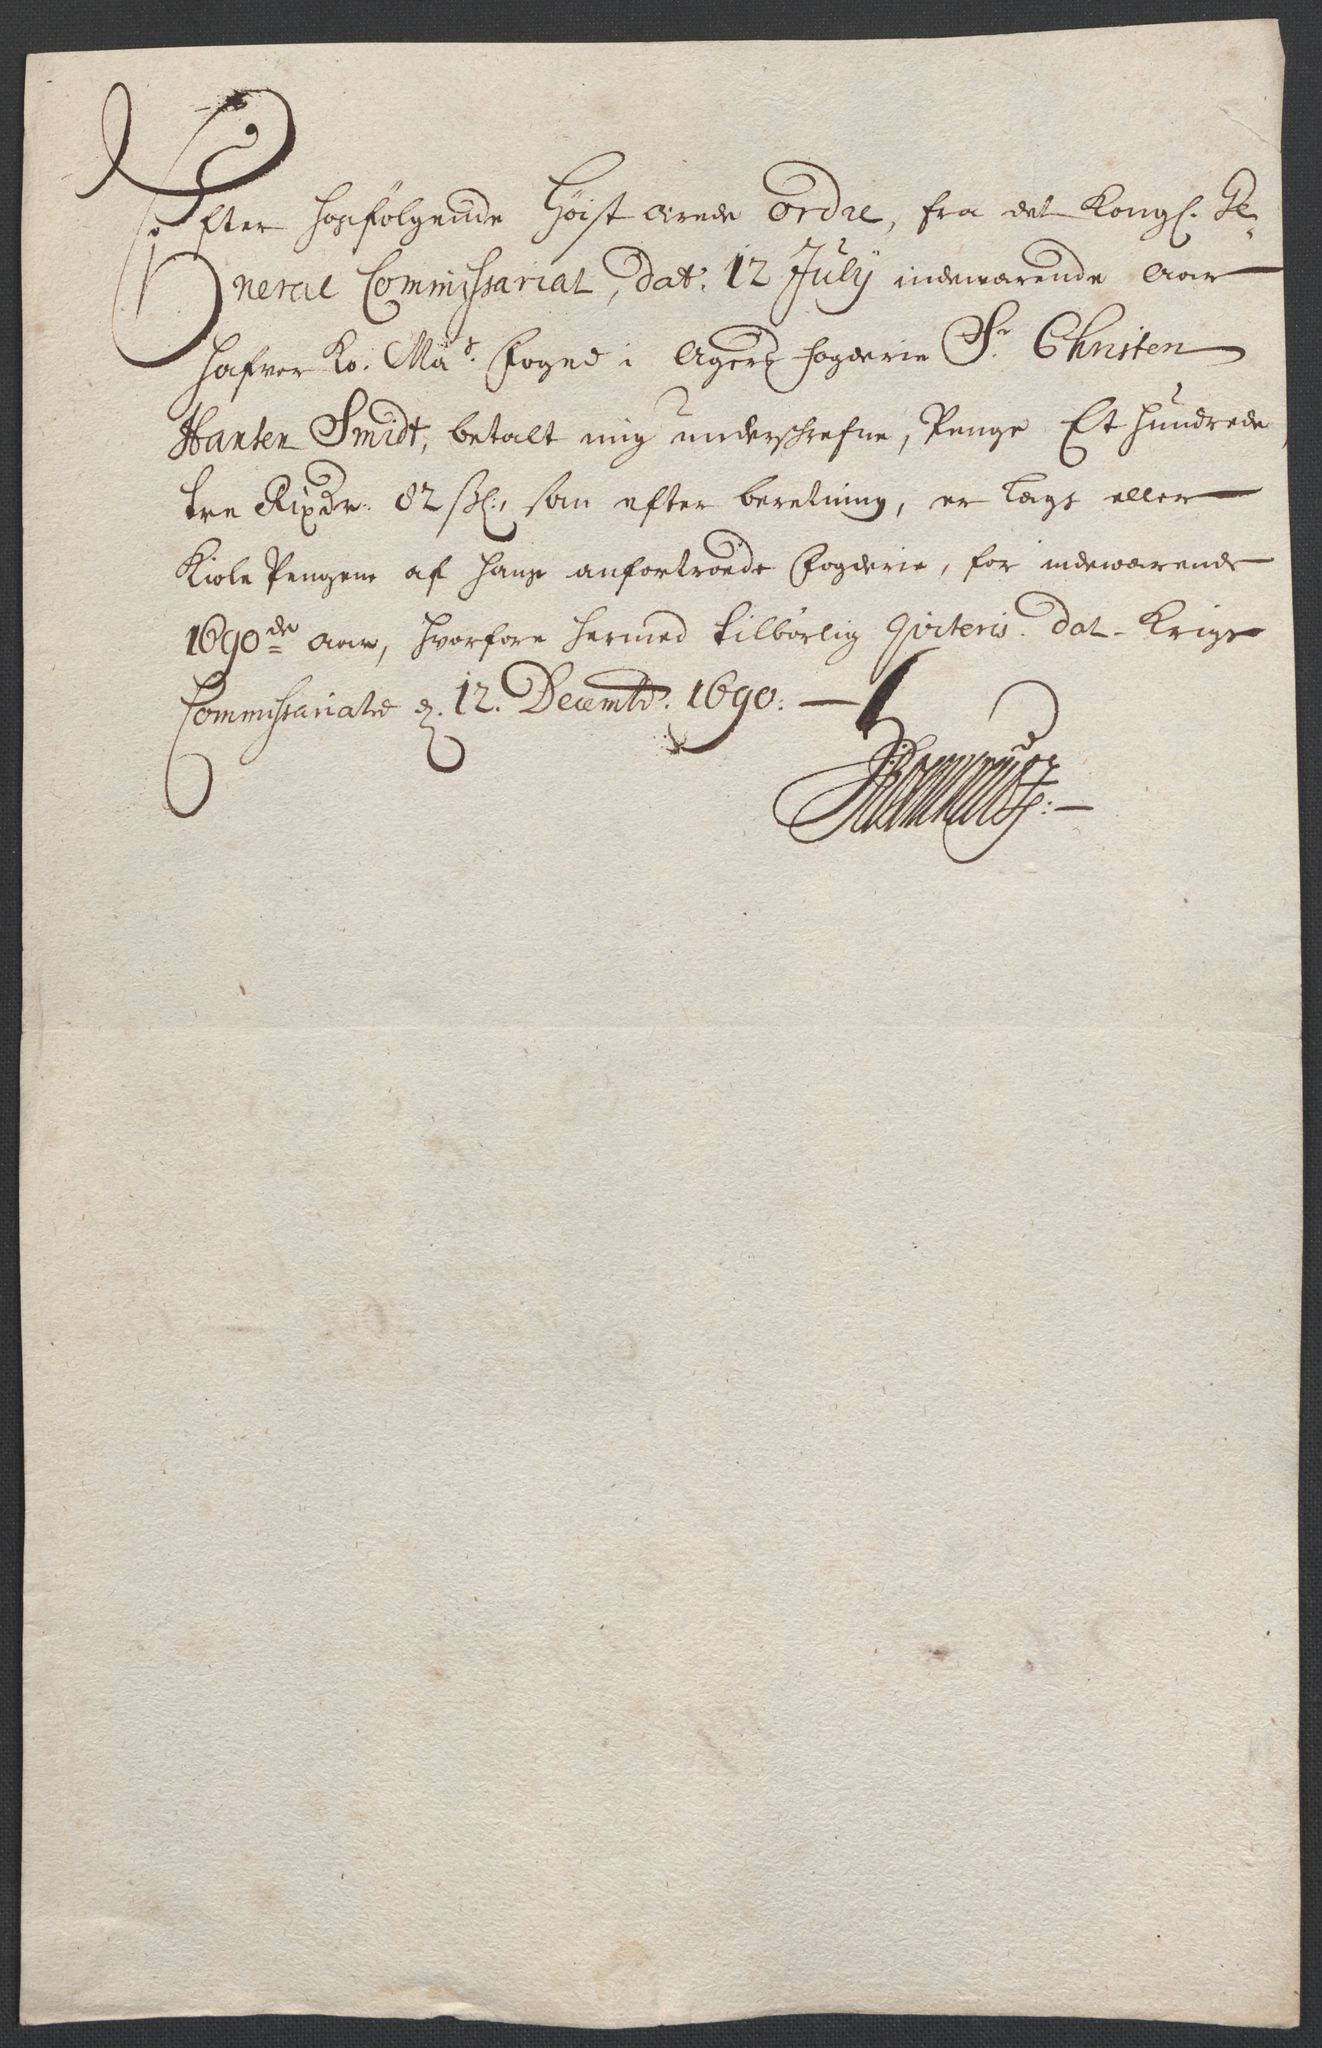 Efter hosfølgende Høist ærede Ordre, fra det Kongl. Ge-
neral Commissariat, dat. 12 July indewærende Aar
Hafver Ko. Ma.ts Foged i Agers fogderie Sr. Christen
Hansen Smidt, betalt mig underschrefne, Penge Et Hundrede
tre Rixdr. 82 sk., som efter beretning, er Lægs eller
Kiole Pengene af Hans anfortroede Fogderie, for indewærende
1690de Aar, Hvorfore Hermed tilbørlig qviteris. Dat. Krigs
Commissariatet d. 12. Decembr. 1690.